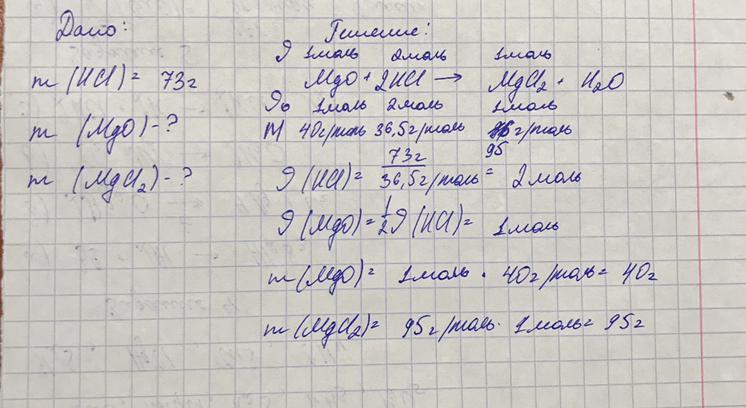 Дано:
Решение:
m (HCl) = 73г
m (MgO) - ?
m (MgCl₂) - ?
ν 1моль 2моль 1моль
MgO + 2HCl → MgCl₂ + H₂O
ν₀ 1моль 2моль 1моль
M 40г/моль 36,5г/моль 95 г/моль
ν (HCl) = 73г / 36,5г/моль = 2моль
ν (MgO) = 1/2 ν (HCl) = 1моль
m (MgO) = 1моль · 40г/моль = 40г
m (MgCl₂) = 95г/моль · 1моль = 95г